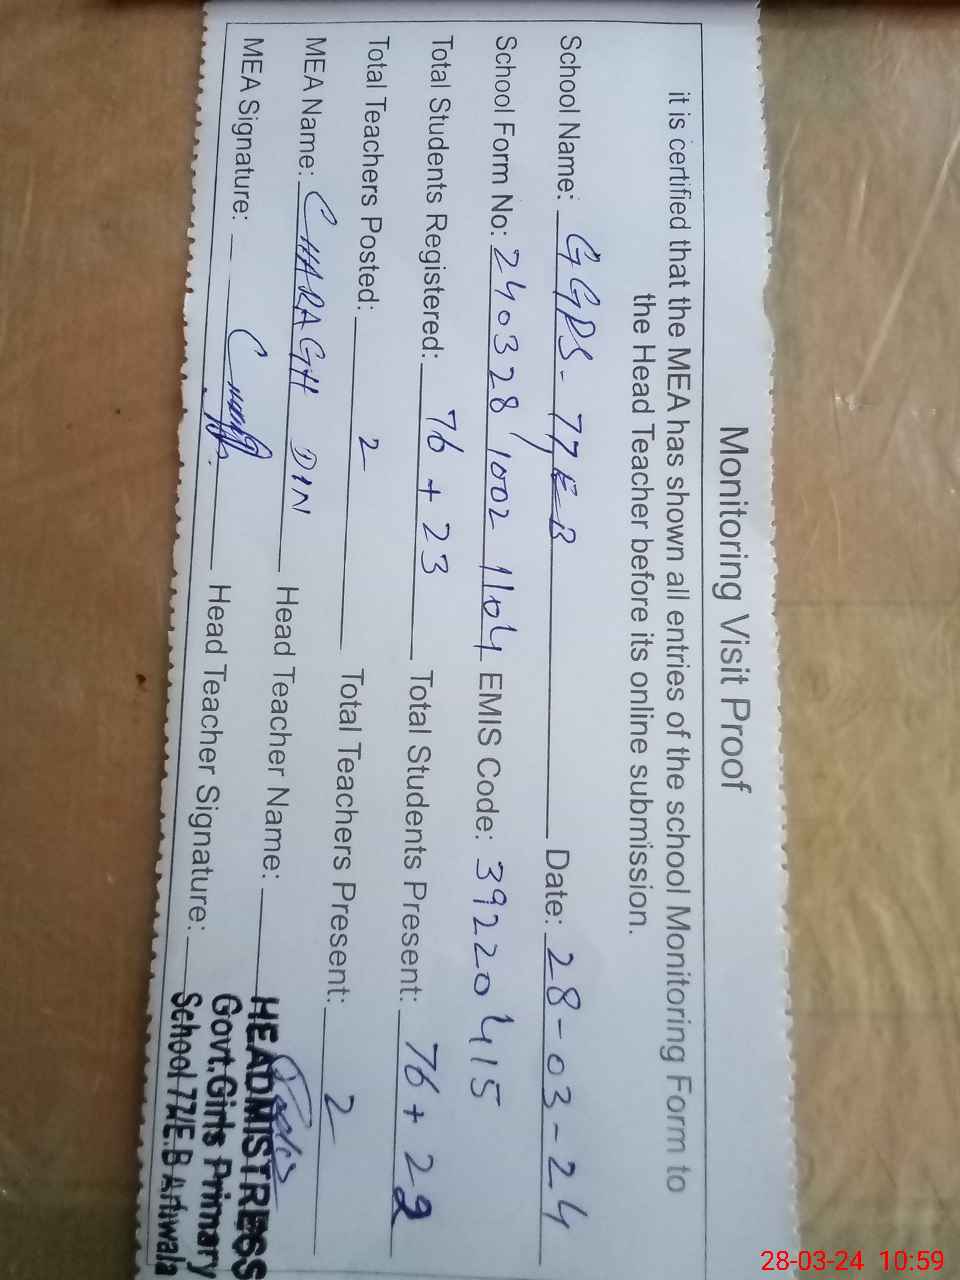 Monitoring Visit Proof
it is certified that the MEA has shown all entries of the school Monitoring Form to
the Head Teacher before its online submission.
School Name: GGPS-77EB Date: 28-03-24
School Form No: 240328 1002 1104 EMIS Code: 39220415
Total Students Registered: 76 + 23 Total Students Present: 76 + 22
Total Teachers Posted: 2 Total Teachers Present: 2
MEA Name: CHARAGH DIN Head Teacher Name:
MEA Signature: Head Teacher Signature:
HEADMISTRESS
Govt.Girls Primary
School 77/E.B Arifwala
28-03-24 10:59